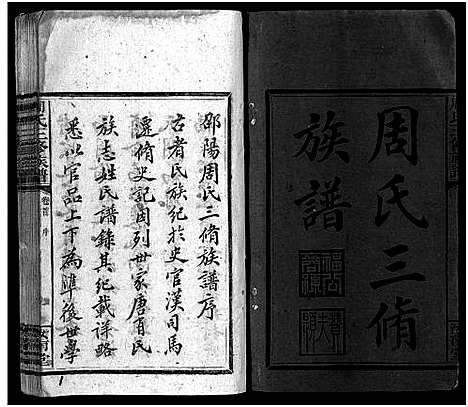 周氏三脩
族譜
邵陽周氏三脩族譜序
古者氏族紀於史官漢司馬
遷脩史記因列世家唐有氏
族志姓氏譜錄其紀載詳略
悉以官品上下為準後世學
卷首
序